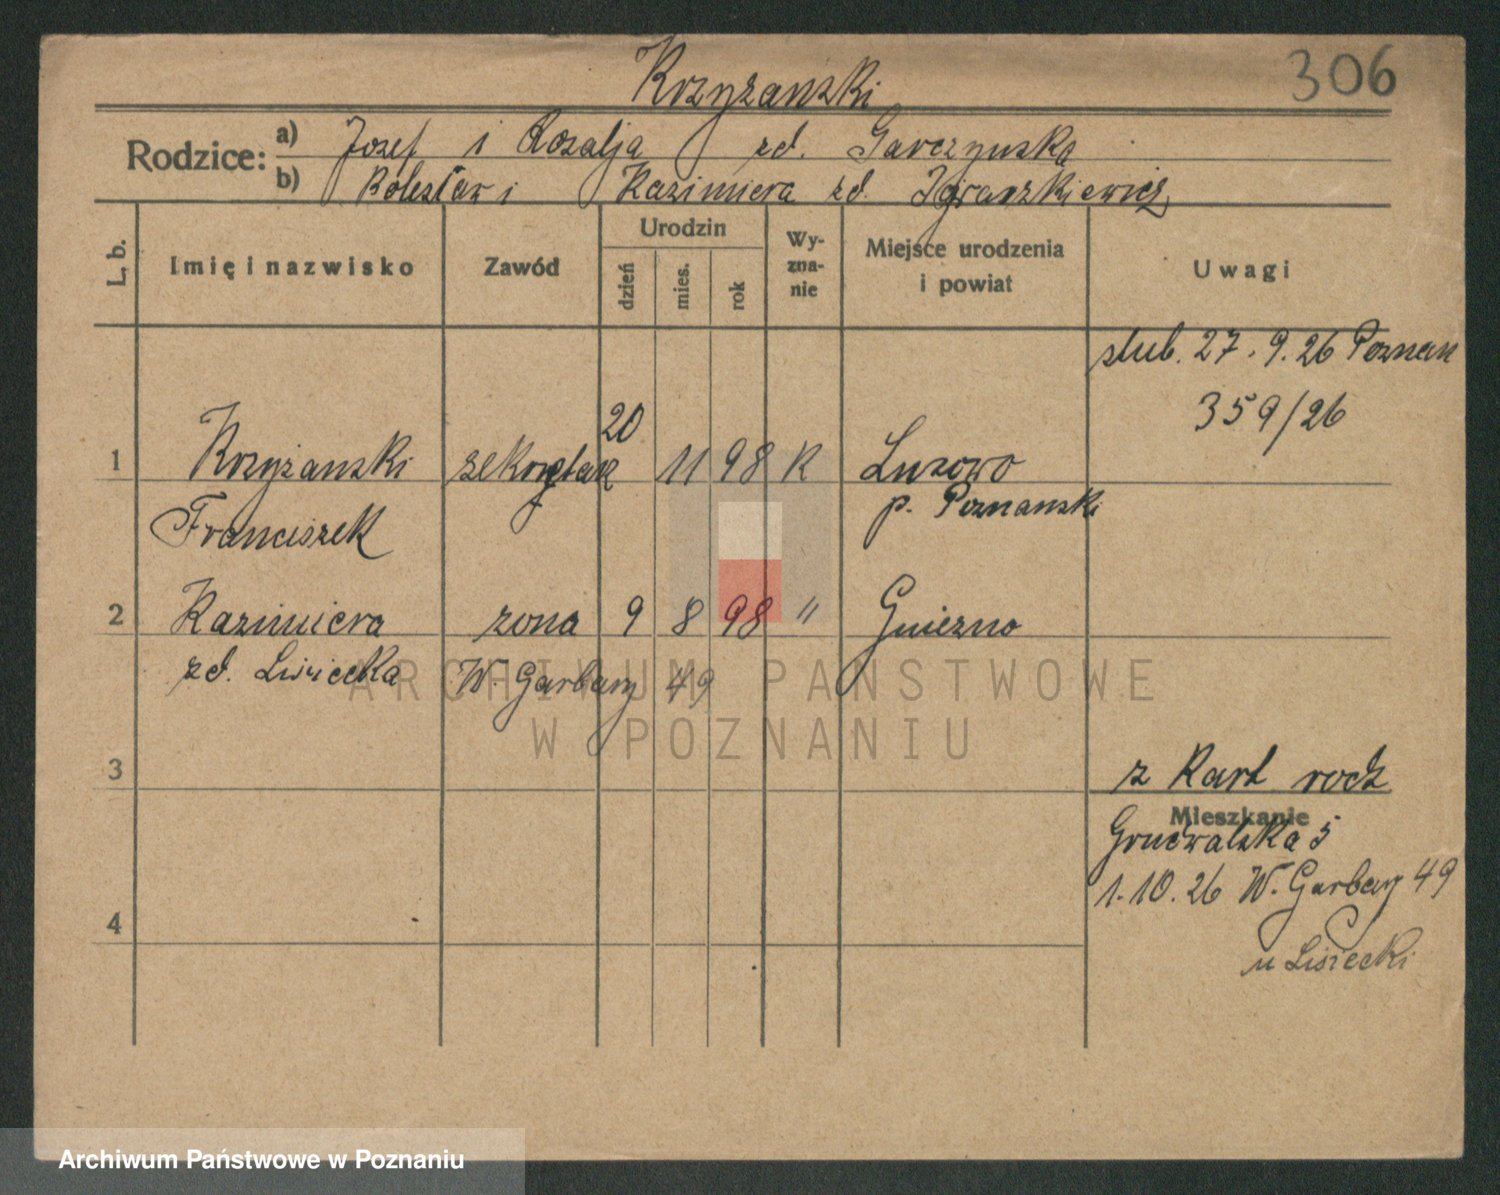 306
Krzyżanski
Rodzice: a) Josef i Rozalja zd. Garczynska
b) Bolesław i Kazimiera zd. Ignaszkiewicz
L. b. Imię i nazwisko Zawód Urodzin dzień mies. rok Wy-zna-nie Miejsce urodzenia i powiat Uwagi
slub. 27. 9. 26 Poznan
359/26
1 Krzyżanski sekretarz 20 11 98 K Lusowo
Franciszek p. Poznanski
2 Kazimiera zona 9 8 98 " Gniezno
zd. Lisiecka W. Garbary 49
ARCHIWUM PAŃSTWOWE
W POZNANIU
3
z Kart rodz
Mieszkanie
Grunwalska 5
1.10.26 W. Garbary 49
4
u Lisiecki
Archiwum Państwowe w Poznaniu